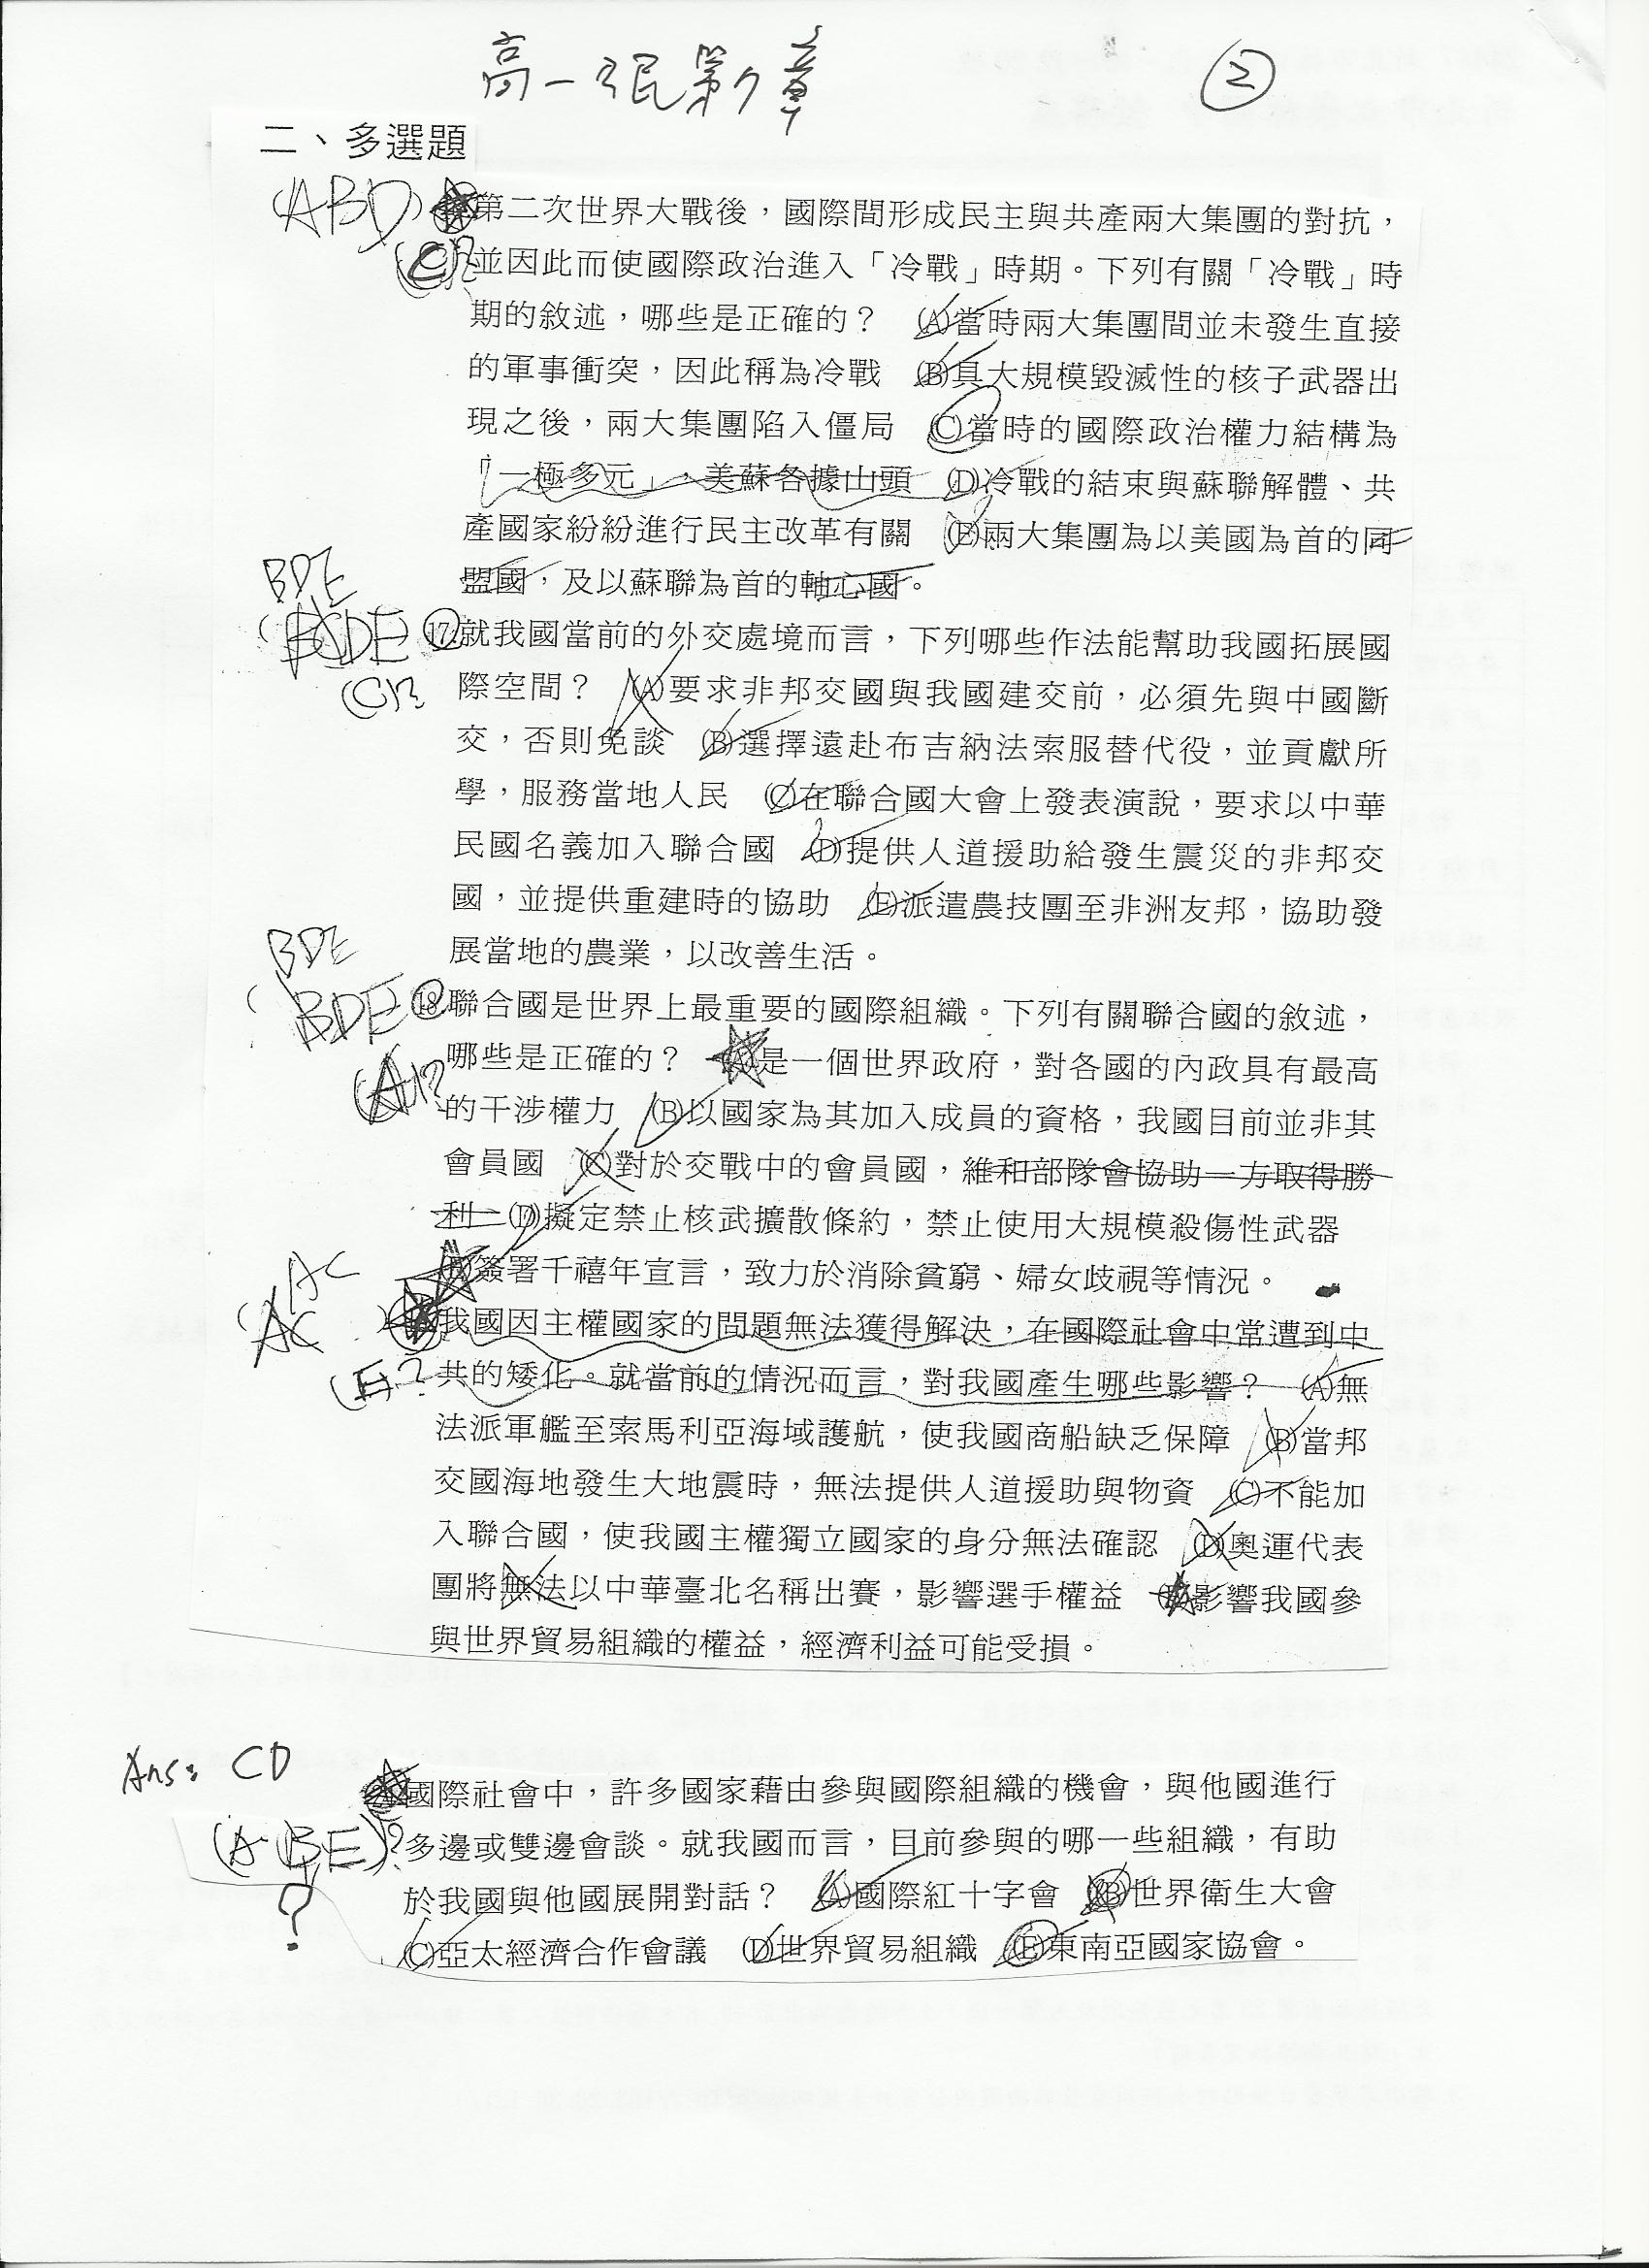 高一公民第7章 ②
二、多選題
(ABD) 第二次世界大戰後，國際間形成民主與共產兩大集團的對抗，
(C)? 並因此而使國際政治進入「冷戰」時期。下列有關「冷戰」時
期的敘述，哪些是正確的？ (A)當時兩大集團間並未發生直接
的軍事衝突，因此稱為冷戰 (B)具大規模毀滅性的核子武器出
現之後，兩大集團陷入僵局 (C)當時的國際政治權力結構為
「一極多元」，美蘇各據山頭 (D)冷戰的結束與蘇聯解體、共
產國家紛紛進行民主改革有關 (E)兩大集團為以美國為首的同
盟國，及以蘇聯為首的軸心國。
BDE
(BCDE) 17.就我國當前的外交處境而言，下列哪些作法能幫助我國拓展國
(C)? 際空間？ (A)要求非邦交國與我國建交前，必須先與中國斷
交，否則免談 (B)選擇遠赴布吉納法索服替代役，並貢獻所
學，服務當地人民 (C)在聯合國大會上發表演說，要求以中華
民國名義加入聯合國 (D)提供人道援助給發生震災的非邦交
國，並提供重建時的協助 (E)派遣農技團至非洲友邦，協助發
展當地的農業，以改善生活。
BDE
(BDE 18.聯合國是世界上最重要的國際組織。下列有關聯合國的敘述，
哪些是正確的？ (A)是一個世界政府，對各國的內政具有最高
(A)? 的干涉權力 (B)以國家為其加入成員的資格，我國目前並非其
會員國 (C)對於交戰中的會員國，維和部隊會協助一方取得勝
利 (D)擬定禁止核武擴散條約，禁止使用大規模殺傷性武器
(E)簽署千禧年宣言，致力於消除貧窮、婦女歧視等情況。
AC
(AC ) 我國因主權國家的問題無法獲得解決，在國際社會中常遭到中
(E)? 共的矮化。就當前的情況而言，對我國產生哪些影響？ (A)無
法派軍艦至索馬利亞海域護航，使我國商船缺乏保障 (B)當邦
交國海地發生大地震時，無法提供人道援助與物資 (C)不能加
入聯合國，使我國主權獨立國家的身分無法確認 (D)奧運代表
團將無法以中華臺北名稱出賽，影響選手權益 (E)影響我國參
與世界貿易組織的權益，經濟利益可能受損。
Ans: CD
國際社會中，許多國家藉由參與國際組織的機會，與他國進行
(A、BE)? 多邊或雙邊會談。就我國而言，目前參與的哪一些組織，有助
? 於我國與他國展開對話？ (A)國際紅十字會 (B)世界衛生大會
(C)亞太經濟合作會議 (D)世界貿易組織 (E)東南亞國家協會。